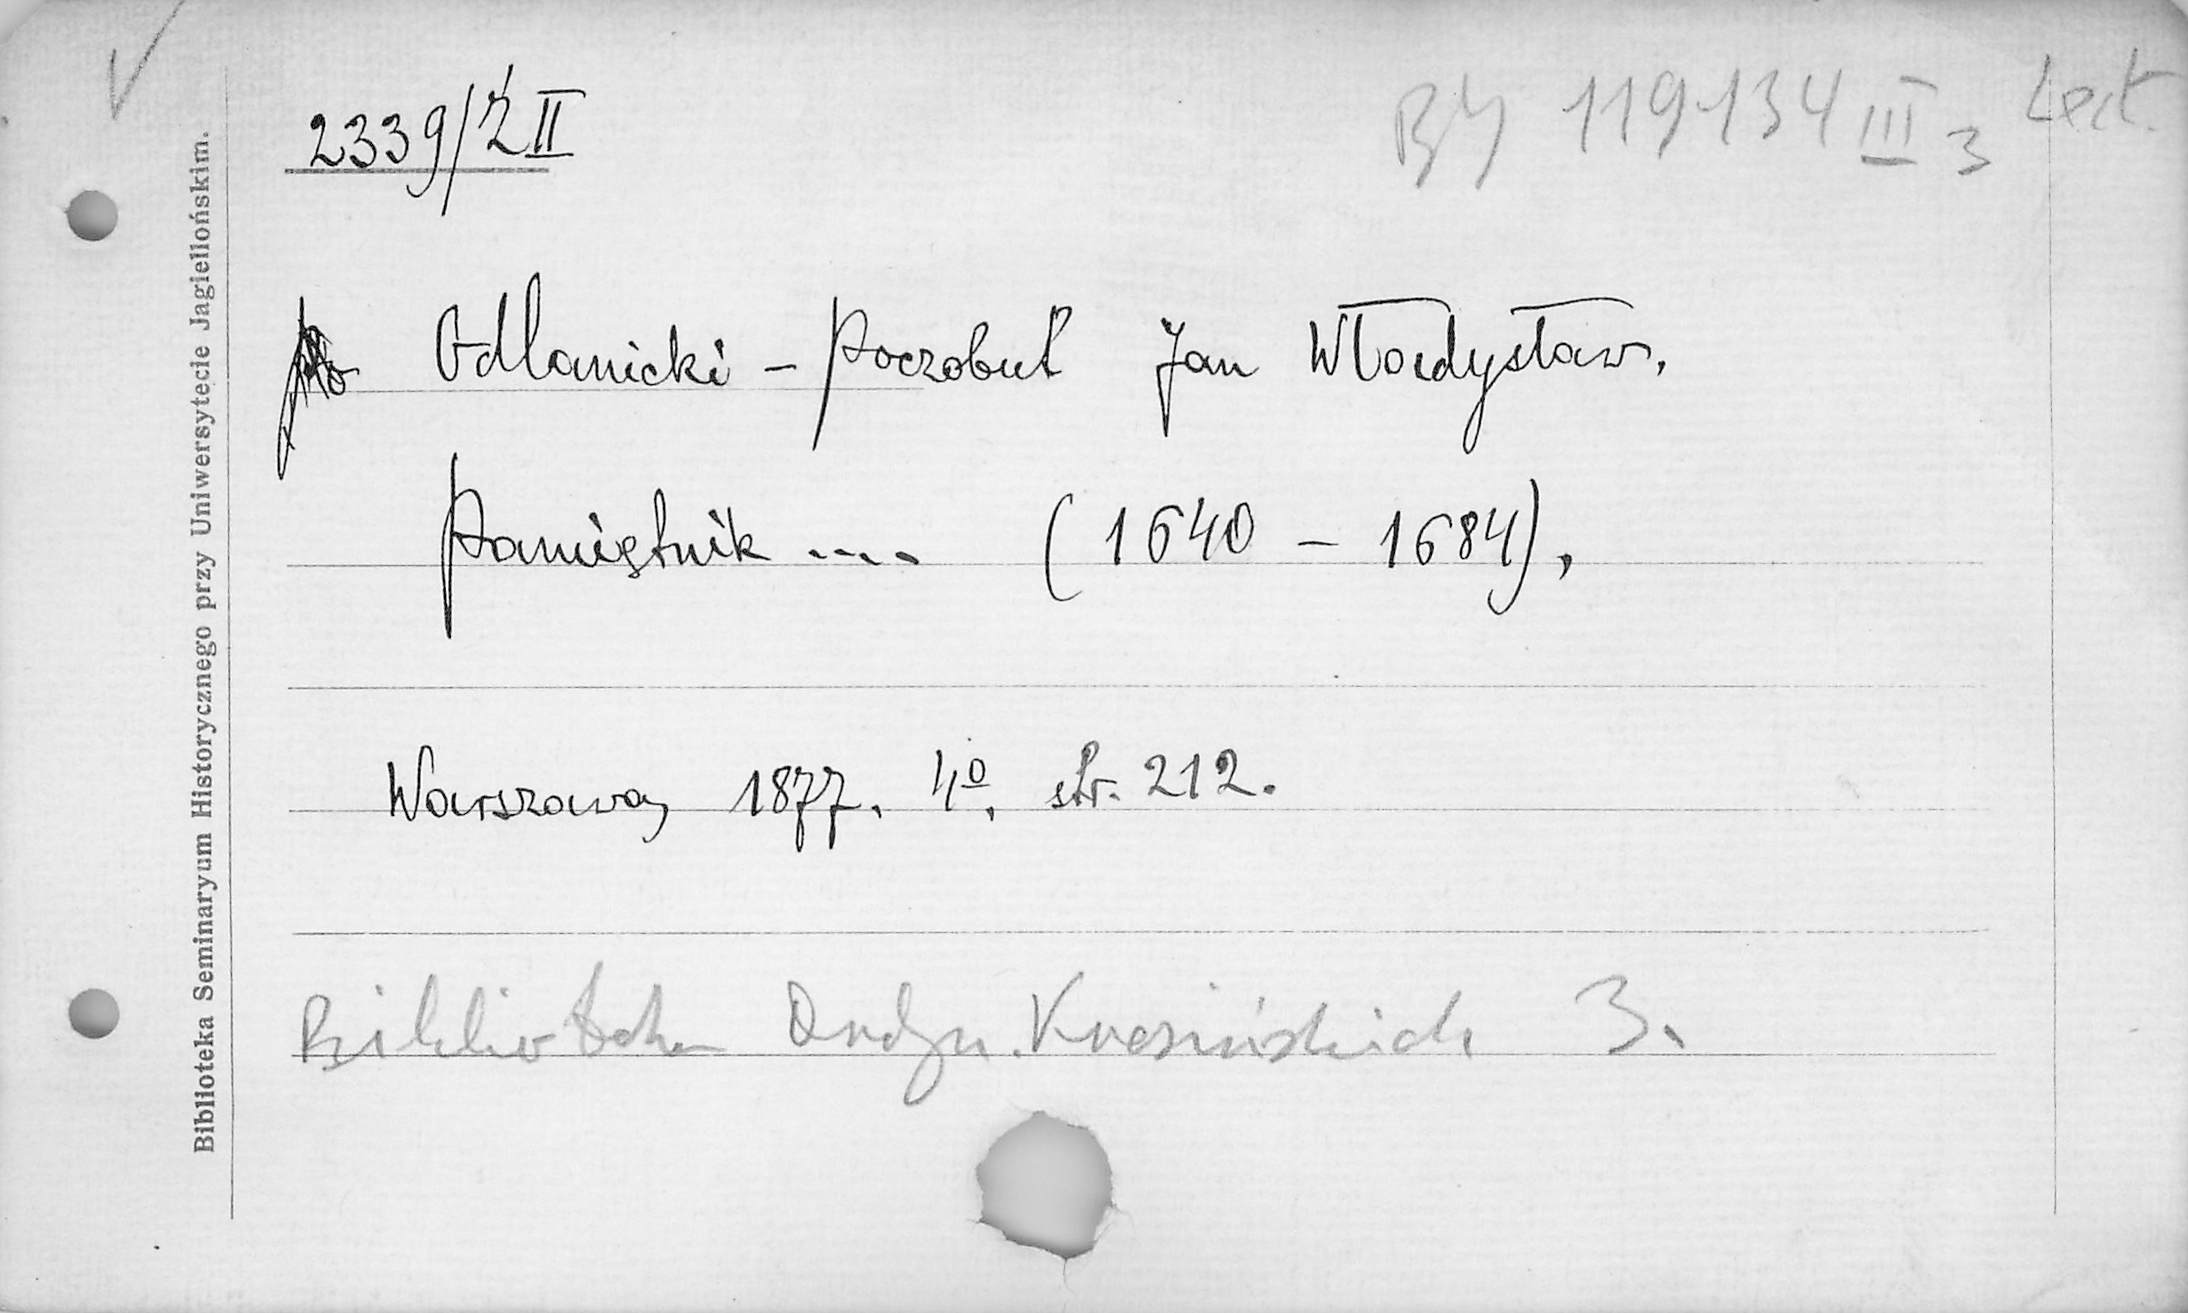 2339/Ż II
BJ 119134 III 3 Lect.
Odlanicki – Poczobut Jan Władysław.
Pamiętnik .... (1640 – 1684),
Warszawa, 1877. 4º. str. 212.
Biblioteka Ordyn. Krasińskich 3.
Biblioteka Seminaryum Historycznego przy Uniwersytecie Jagiellońskim.